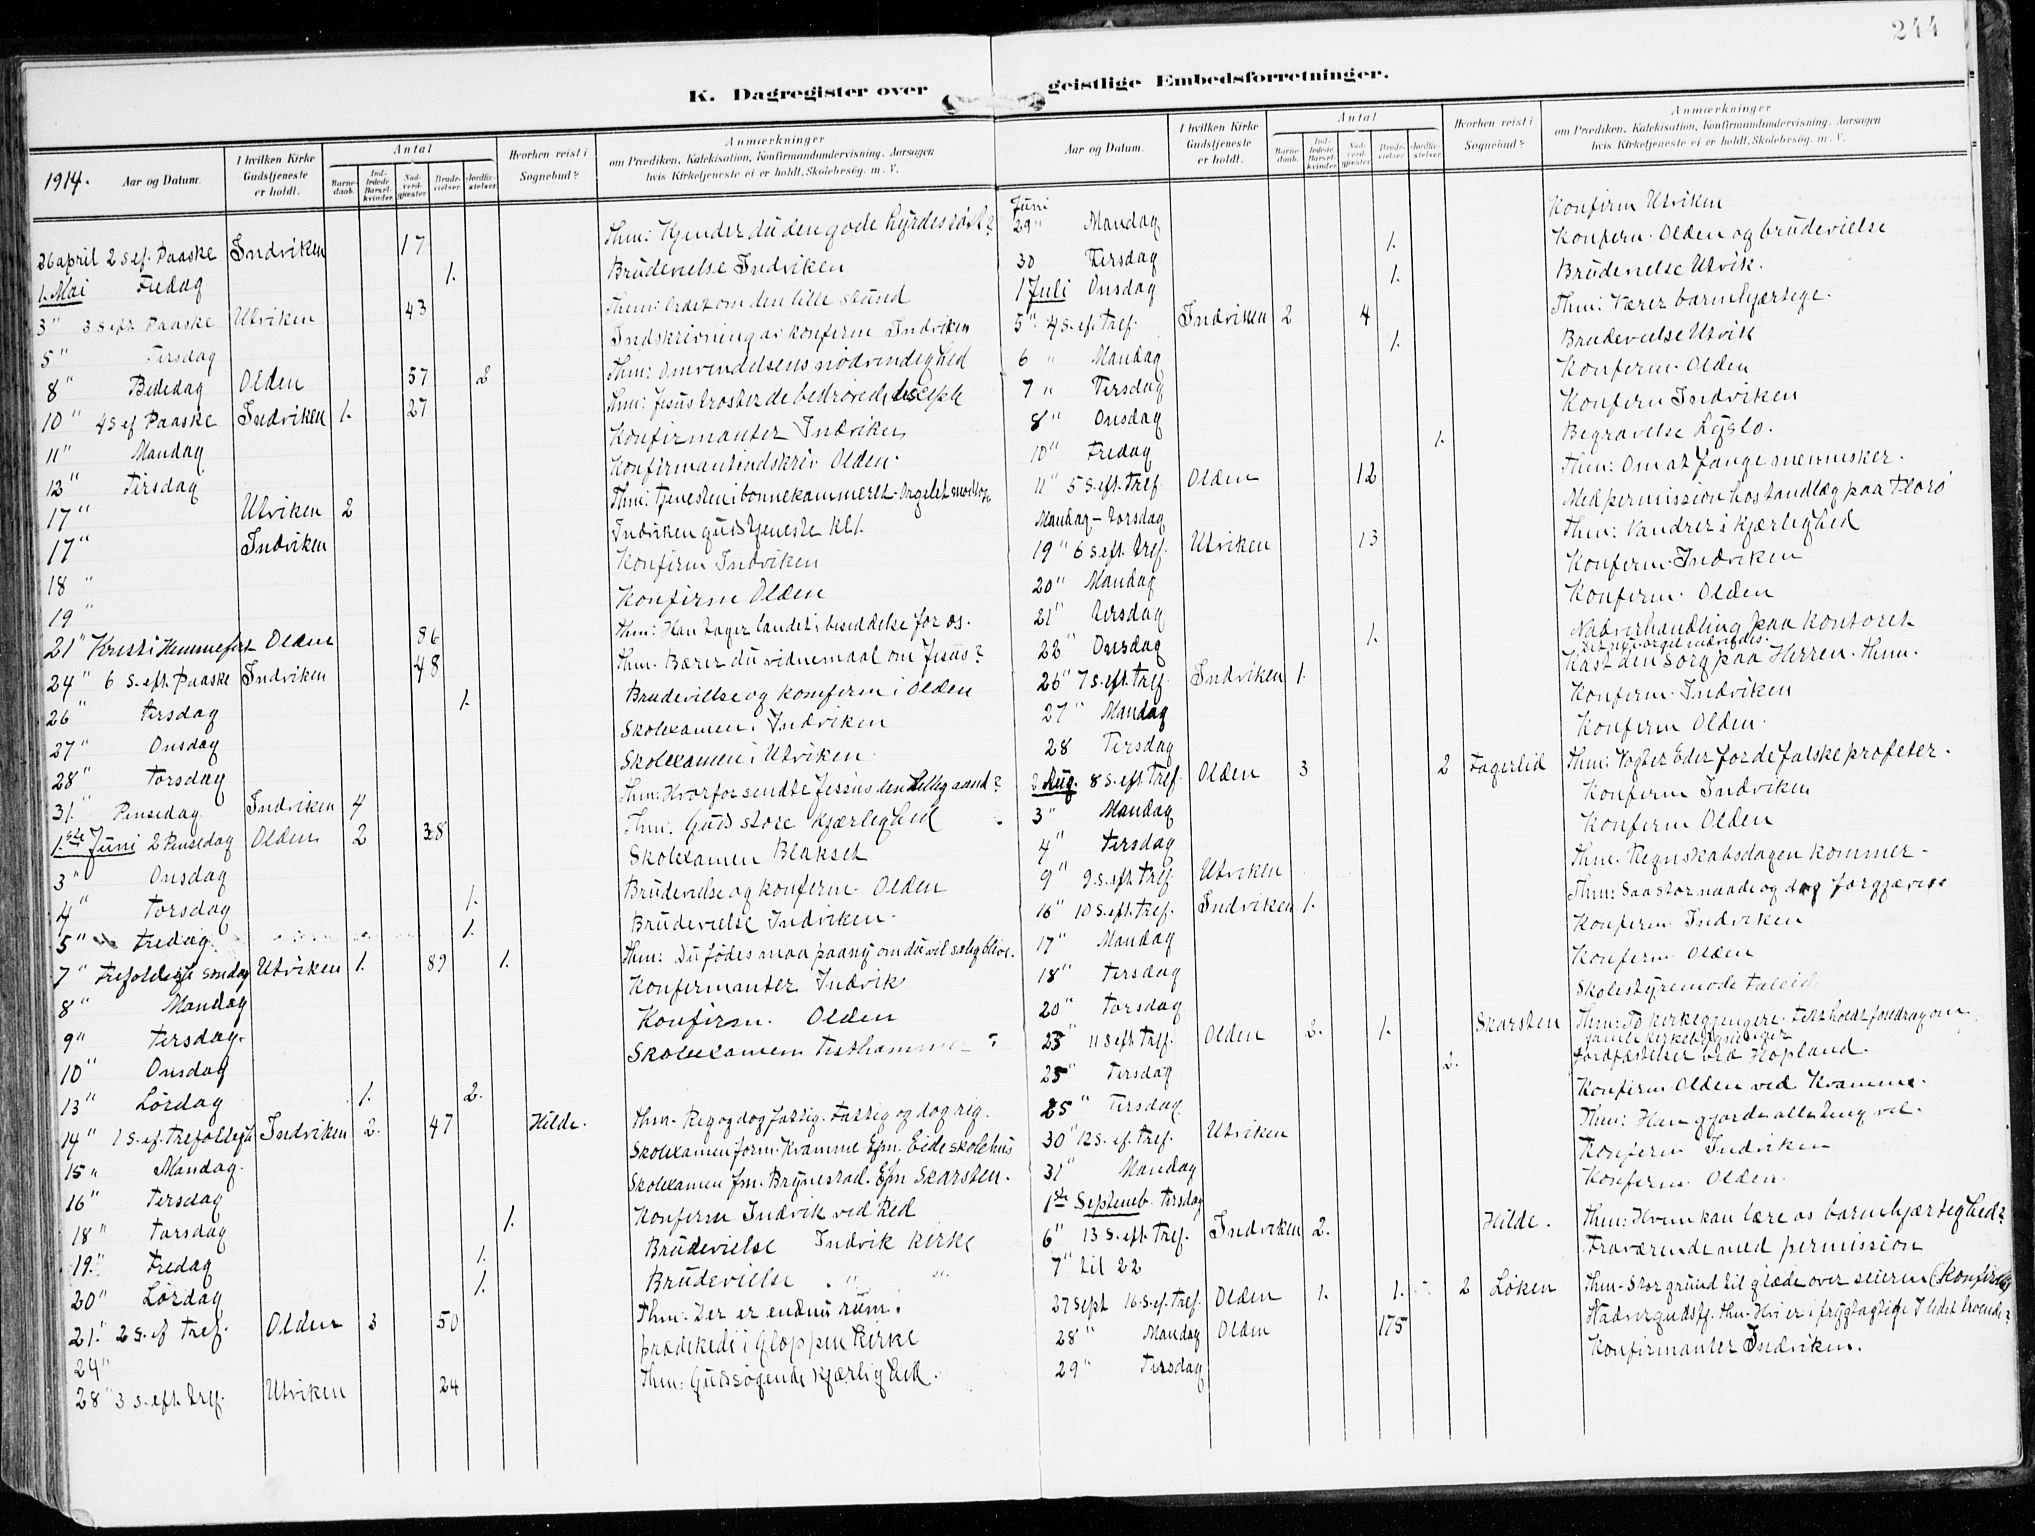 244
K. Dagregister over geistlige Embedsforretninger.
1914. Aar og Datum. I hvilken Kirke Gudstjeneste er holdt. Antal Barnedaab. Indledede Barselkvinder. Nadverdgjester. Brudevielser. Jordfæstelser. Hvorhen reist i Sognebud? Anmærkninger om Prædiken, Katekisation, Konfirmandundervisning, Aarsagen hvis Kirketjeneste ei er holdt, Skolebesøg. m. V.
26 april 2 S ef. Paaske Indviken 17 Thm: Kjender du den gode hyrdes røst?
1. Mai Fredag 1. Brudevielse Indviken
3" 3 S eft Paaske Utviken 43 Them: Ordet om den lille stund
5" Tirsdag Indskrivning av konferm Indviken
8" Bededag Olden 57 2 Thm: Omvendelsens nødvendighed
10" 4 S ef Paaske Indviken 1. 27 Thm: Jesus trøster de bedrøvede disciple
11" Mandag Konfirmanter Indviken
12" Tirsdag Konfirmantindskriv Olden.
17" Utviken 2 Thm: Tjenesten i bønnekammeret.
17" Indviken Indviken gudstjeneste kl 1.
18 " Konferm Indviken
19 " Konfirm Olden
21" Kristi Himmelfart Olden 86 Thm: Han tager landet i besiddelse for os.
24" 6 S. eft. Paaske Indviken 48 Thm. Bærer du vidnemaal om Jesus?
26" Tirsdag 1. Brudevielse og konferm i Olden
27" Onsdag Skolexamen i Indviken
28" Torsdag Skolexamen i Utviken.
31." Pinsedag Indviken 4 Thm: Hvorfor sendte Jesus den Hellig aand?
1.ste Juni 2 Pinsedag Olden 2 38 Thm: Guds store kjærlighed
3" Onsdag Skolexamen Blakset
4" Torsdag 1. Brudevielse og konferm. Olden
5" Fredag 1. Brudevielse Indviken.
7" Trefoldigh søndag Utviken 1. 89 1. Thm: Du fødes maa paany om du vil salig blive.
8" Mandag Konfermanter Indvik
9" Tirsdag. Konfirm. Olden
10" Onsdag Skolexamen
13" Lørdag 1. 2.
14" 1 S. ef. Trefoldigh Indviken 2. 47 Hilde. Thm. Rig og dog fattig. Fattig og dog rig.
15" Mandag. Skolexamen form. Kvamme Efm. Eide skolehus
16" Tirsdag Skolexamen fm. Brynestad. Efm Skarsten.
18" Torsdag 1. Konferm Indvik ved Red
19." Fredag 1. Brudevielse Indvik kirke
20" Lørdag 1. Brudevielse " "
21." 2 S. ef Tref. Olden 3 50 Thm: Der er endnu rum.
24" prædikede i Gloppen kirke
28" 3 S. eft. Tref. Utviken 24 Thm: Guds søgende kjærlighed.
Aar og Datum. I hvilken Kirke Gudstjeneste er holdt. Antal Barnedaab. Indledede Barselkvinder. Nadverdgjester. Brudevielser. Jordfæstelser. Hvorhen reist i Sognebud? Anmærkninger om Prædiken, Katekisation, Konfirmandundervisning, Aarsagen hvis Kirketjeneste ei er holdt, Skolebesøg. m. V.
Juni
29" Mandag Konfirm Utviken
30 Tirsdag 1. Konferm. Olden og brudevielse
1 Juli Onsdag 1. Brudevielse Utvik.
5" 4 S. ef. Tref. Indviken 2 4 Thm: Værer barmhjærtige.
6 " Mandag 1. Brudevielse Utvik
7 " Tirsdag Konferm. Olden
8" Onsdag Konferm Indviken
10" Fredag 1. Begravelse Lyslo.
11" 5 S. eft. Tref. Olden 12 Thm: Om at fange mennesker.
Mandag – Torsdag Med permission paa Florø
19" 6 S. eft. Tref. Utviken 13 Thm: Vandrer i kjærlighed
20" Mandag Konferm. Indviken
21" Tirsdag Konferm. Olden
22" Onsdag 1. Nadverhandling paa kontoret
26" 7 S. eft. Tref. Indviken 1. Kast den sorg paa Herren. Thm.
27" Mandag Konferm. Indviken
28 Tirsdag Konferm Olden.
2 Aug. 8 S. eft Tref. Olden 3 2 Fagerlid Thm: Vogter Eder for de falske profeter.
3" Mandag Konferm Indviken
4" Tirsdag Konferm Olden
9" 9 S. eft Tref. Utviken Thm. Regnskabsdagen kommer.
16" 10 S. eft. Tref. Indviken 1. Thm: Saa stor naade og dog forgjæves
17" Mandag Konferm. Indviken
18" Tirsdag Konferm. Olden
20" Torsdag Skolestyremøde Faleid
23" 11 S eft Tref. Olden 2. 1. Skarsten Thm: To kirkegjængere.
25" Tirsdag 2. Jordfæstelser ved Hopland.
25" Tirsdag Konfirm Olden ved Kvamme.
30" 12 S. ef. Tref. Utviken Thm: Han gjorde alle ting vel.
31" Mandag Konferm Indviken
1ste Septemb. Tirsdag Konferm. Olden.
6" 13 S. eft. Tref. Indviken 2. Hilde. Thm: Hvem kan lære os barmhjærtighed?
7" til 22 Fraværende med permission
27 Sept 16 S. ef. Tref. Olden 1. 1. 2 Løken Thm. Stor grund til glæde over seieren
28" Mandag Olden 175
29" Tirsdag Konfirmanter Indviken.